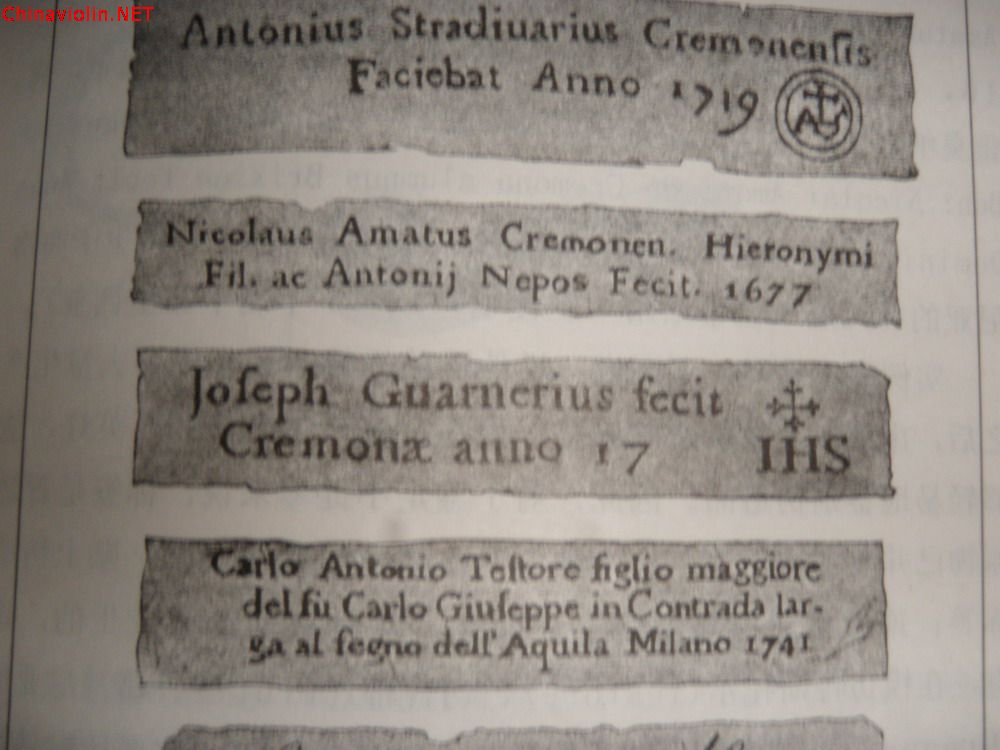 Chinaviolin.NET
Antonius Stradiuarius Cremonenſis
Faciebat Anno 1719
AS
Nicolaus Amatus Cremonen. Hieronymi
Fil. ac Antonij Nepos Fecit. 1677
Joſeph Guarnerius fecit
Cremonæ anno 17
IHS
Carlo Antonio Teſtore figlio maggiore
del fù Carlo Giuſeppe in Contrada lar-
ga al ſegno dell'Aquila Milano 1741